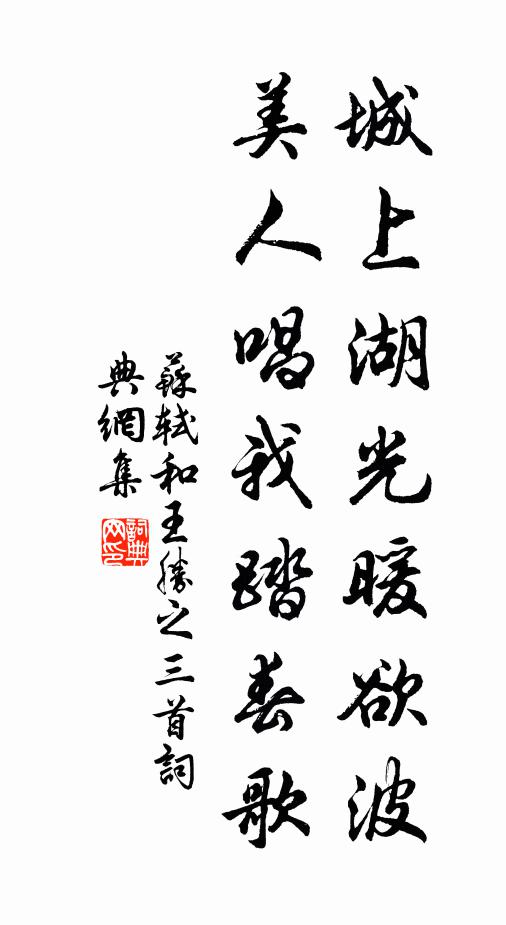 城上湖光暖欲波
美人唱我踏春歌
蘇軾和王勝之三首詞
典網集
詞典网印